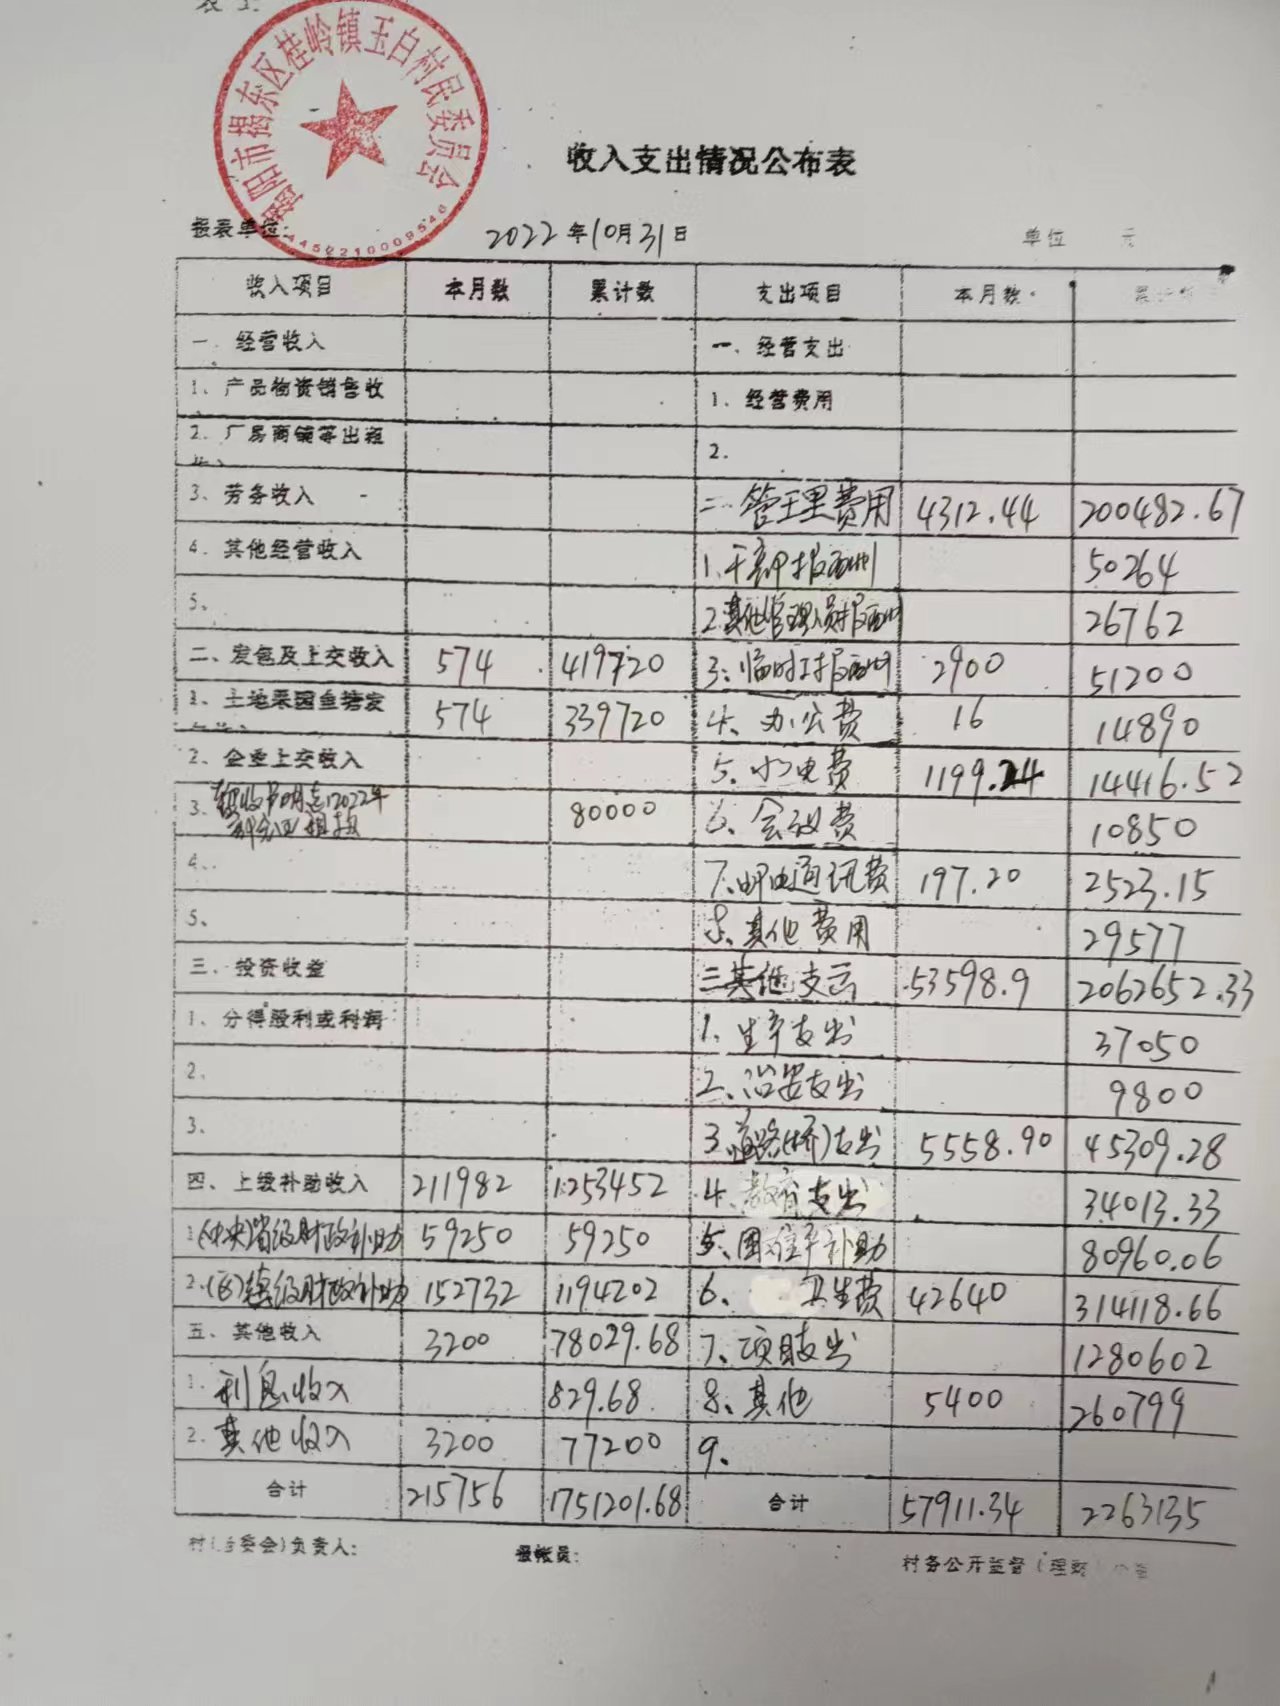 表1:
揭阳市揭东区桂岭镇玉白村民委员会
4452210009546
收入支出情况公布表
报表单位: 2022年10月31日 单位 元
收入项目 本月数 累计数 支出项目 本月数 累计数
一 经营收入 一、经营支出
1、产品物资销售收 1、经营费用
2、厂房商铺等出租 2.
3、劳务收入 二 管理费用 4312.44 200482.67
4.其他经营收入 1、干部报酬 50264
5、 2.其他管理人员报酬 26762
二、发包及上交收入 574 419720 3、临时工报酬 2900 51200
1、土地果园鱼塘发 574 339720 4、办公费 16 14890
2、企业上交收入 5、水电费 1199.24 14416.52
3. 2022年 80000 6、会议费 10850
4. 7、邮电通讯费 197.20 2523.15
5、 8、其他费用 29577
三、投资收益 三其他支出 53598.9 2062652.33
1、分得股利或利润 1、生产支出 37050
2. 2、治安支出 9800
3、 3、道路(桥)支出 5558.90 45309.28
四、上级补助收入 211982 1253452 4、教育支出 34013.33
1.(中央)省级财政补助 59250 59250 5、困难户补助 80960.06
2.(区)镇级财政补助 152732 1194202 6、卫生费 42640 314118.66
五、其他收入 3200 78029.68 7、项目支出 1280602
1.利息收入 829.68 8、其他 5400 260799
2.其他收入 3200 77200 9、
合计 215756 1751201.68 合计 57911.34 2263135
村(居委会)负责人: 报帐员: 村务公开监督(理财)小组